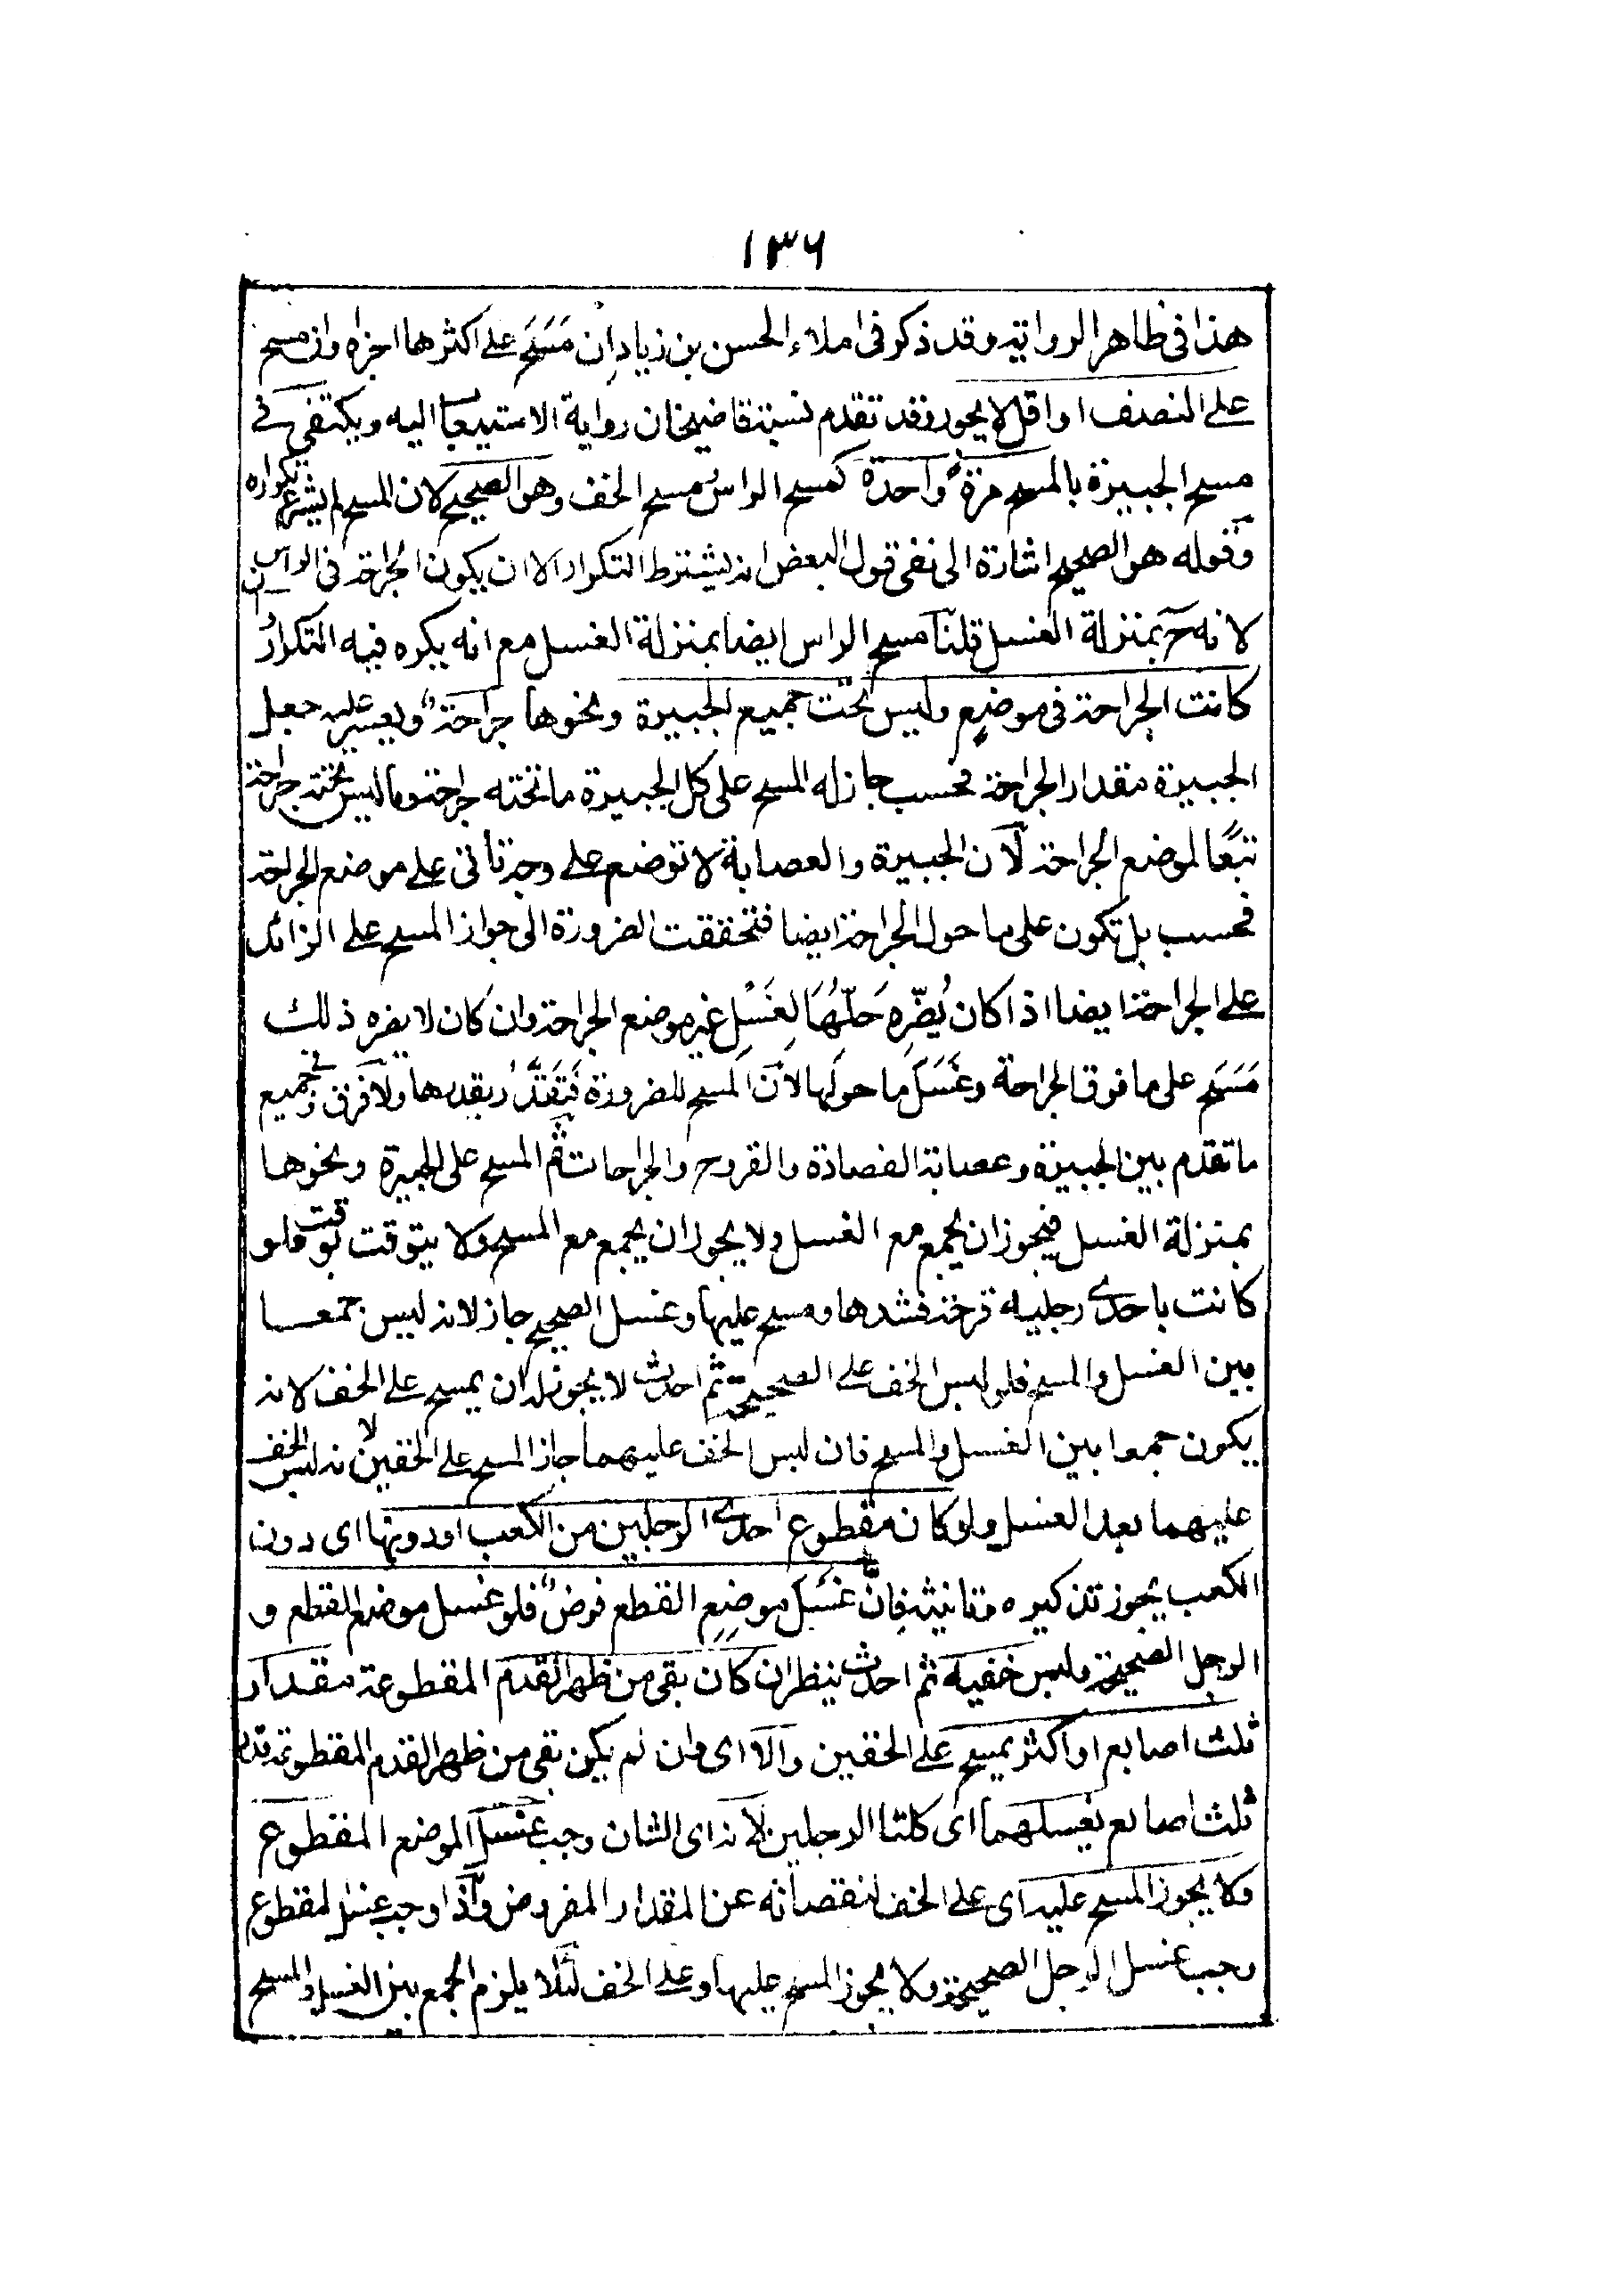 ١٣٦
هذا فى ظاهر الرواية وقد ذكر فى املاء الحسن بن زياد اِن مَسَحَ على اكثرها اجزاه وان مسح
على النصف او اقل لا يجوز وقد تقدم نسبة قاضيخان رواية الاستيعاب اليه ويكتفى فى
مسح الجبيرة بالمسح مرةً واحدة كمسح الراس ومسح الخف وهو الصحيح لان المسح لم يشرع تكراره
وقوله هو الصحيح اشارة الى نفى قول البعض انه يشترط التكرار الا ان يكون الجراحة فى الراس
لانه ح بمنزلة الغسل قلنا مسح الراس ايضا بمنزلة الغسل مع انه يكره فيه التكرارُ
كانت الجراحة فى موضعٍ وليس تحت جميع الجبيرة ونحوها جراحةٌ ويعسر عليه جعل
الجبيرة مقدار الجراحة فحسب جاز له المسح على كل الجبيرة ما تحته جراحة وما ليس تحته جراحة
تبعًا لموضع الجراحة لآن الجبيرة والعصابة لا توضع على وجه تأتى على موضع الجراحة
فحسب بل تكون على ما حول الجراحة ايضا فتحققت الضرورة الى جواز المسح على الزائد
على الجراحة ايضا اذا كان يُضّرِهِ حَلّهَا لِغَسْلِ غير موضع الجراحة وان كان لا يضره ذلك
مَسَحَ على ما فوق الجراحة وغَسَلَ ما حولها لآن المسح للضرورة فَيَتَقَدَّرُ بقدرها ولا فرق فى جميع
ما تقدم بين الجبيرة وعصابة الفصادة والقروح والجراحات ثم المسح على الجبيرة ونحوها
بمنزلة الغسل فيجوز ان يجمع مع الغسل ولا يجوز ان يجمع مع المسح ولا يتوقت بوقت فلو
كانت باحدى رجليه قرحة فشدها ومسح عليها وغسل الصحيح جاز لانه ليس جمعا
بين الغسل والمسح فلو لبس الخف على الصحيحة ثم احدث لا يجوز له ان يمسح على الخف لانه
يكون جمعا بين الغسل والمسح فان لبس الخف عليهما جاز المسح على الخفين لانه لبس الخف
عليهما بعد الغسل ولو كان مقطوع احدى الرجلين من الكعب او دونها اى دون
الكعب يجوز تذكيره وتانيثه فانَّ غسلَ موضِعِ القطع فرضٌ فلو غسل موضع القطع و
الرجل الصحيحة ولبس خفيه ثم احدث ينظر ان كان بقى من ظهر القدم المقطوعة مقدار
ثلث اصابع او اكثر يمسح على الخفين والا اى وان لم يكن بقى من ظهر القدم المقطوعة قدر
ثلث اصابع يغسلهما اى كلتا الرجلين لآنه اى الشان وجب غسل الموضع المقطوع
ولا يجوز المسح عليه اى على الخف لنقصانه عن المقدار المفروض وآذا وجب غسل المقطوع
وجب غسل الرجل الصحيحة ولا يجوز المسح عليها وعلى الخف لئلا يلزم الجمع بين الغسل والمسح